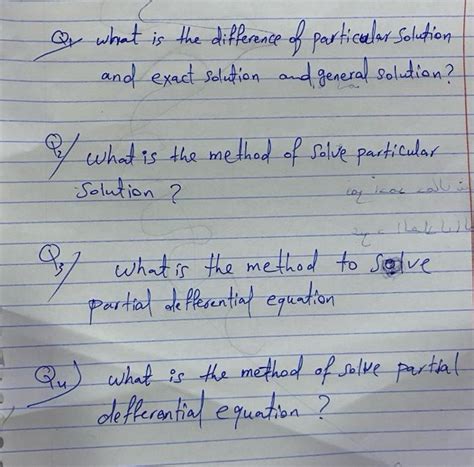 Q1/ what is the difference of particular solution
and exact solution and general solution?
Q2/ what is the method of solve particular
solution ?
Q3/ what is the method to solve
partial defferential equation
Q4) what is the method of solve partial
defferential equation ?